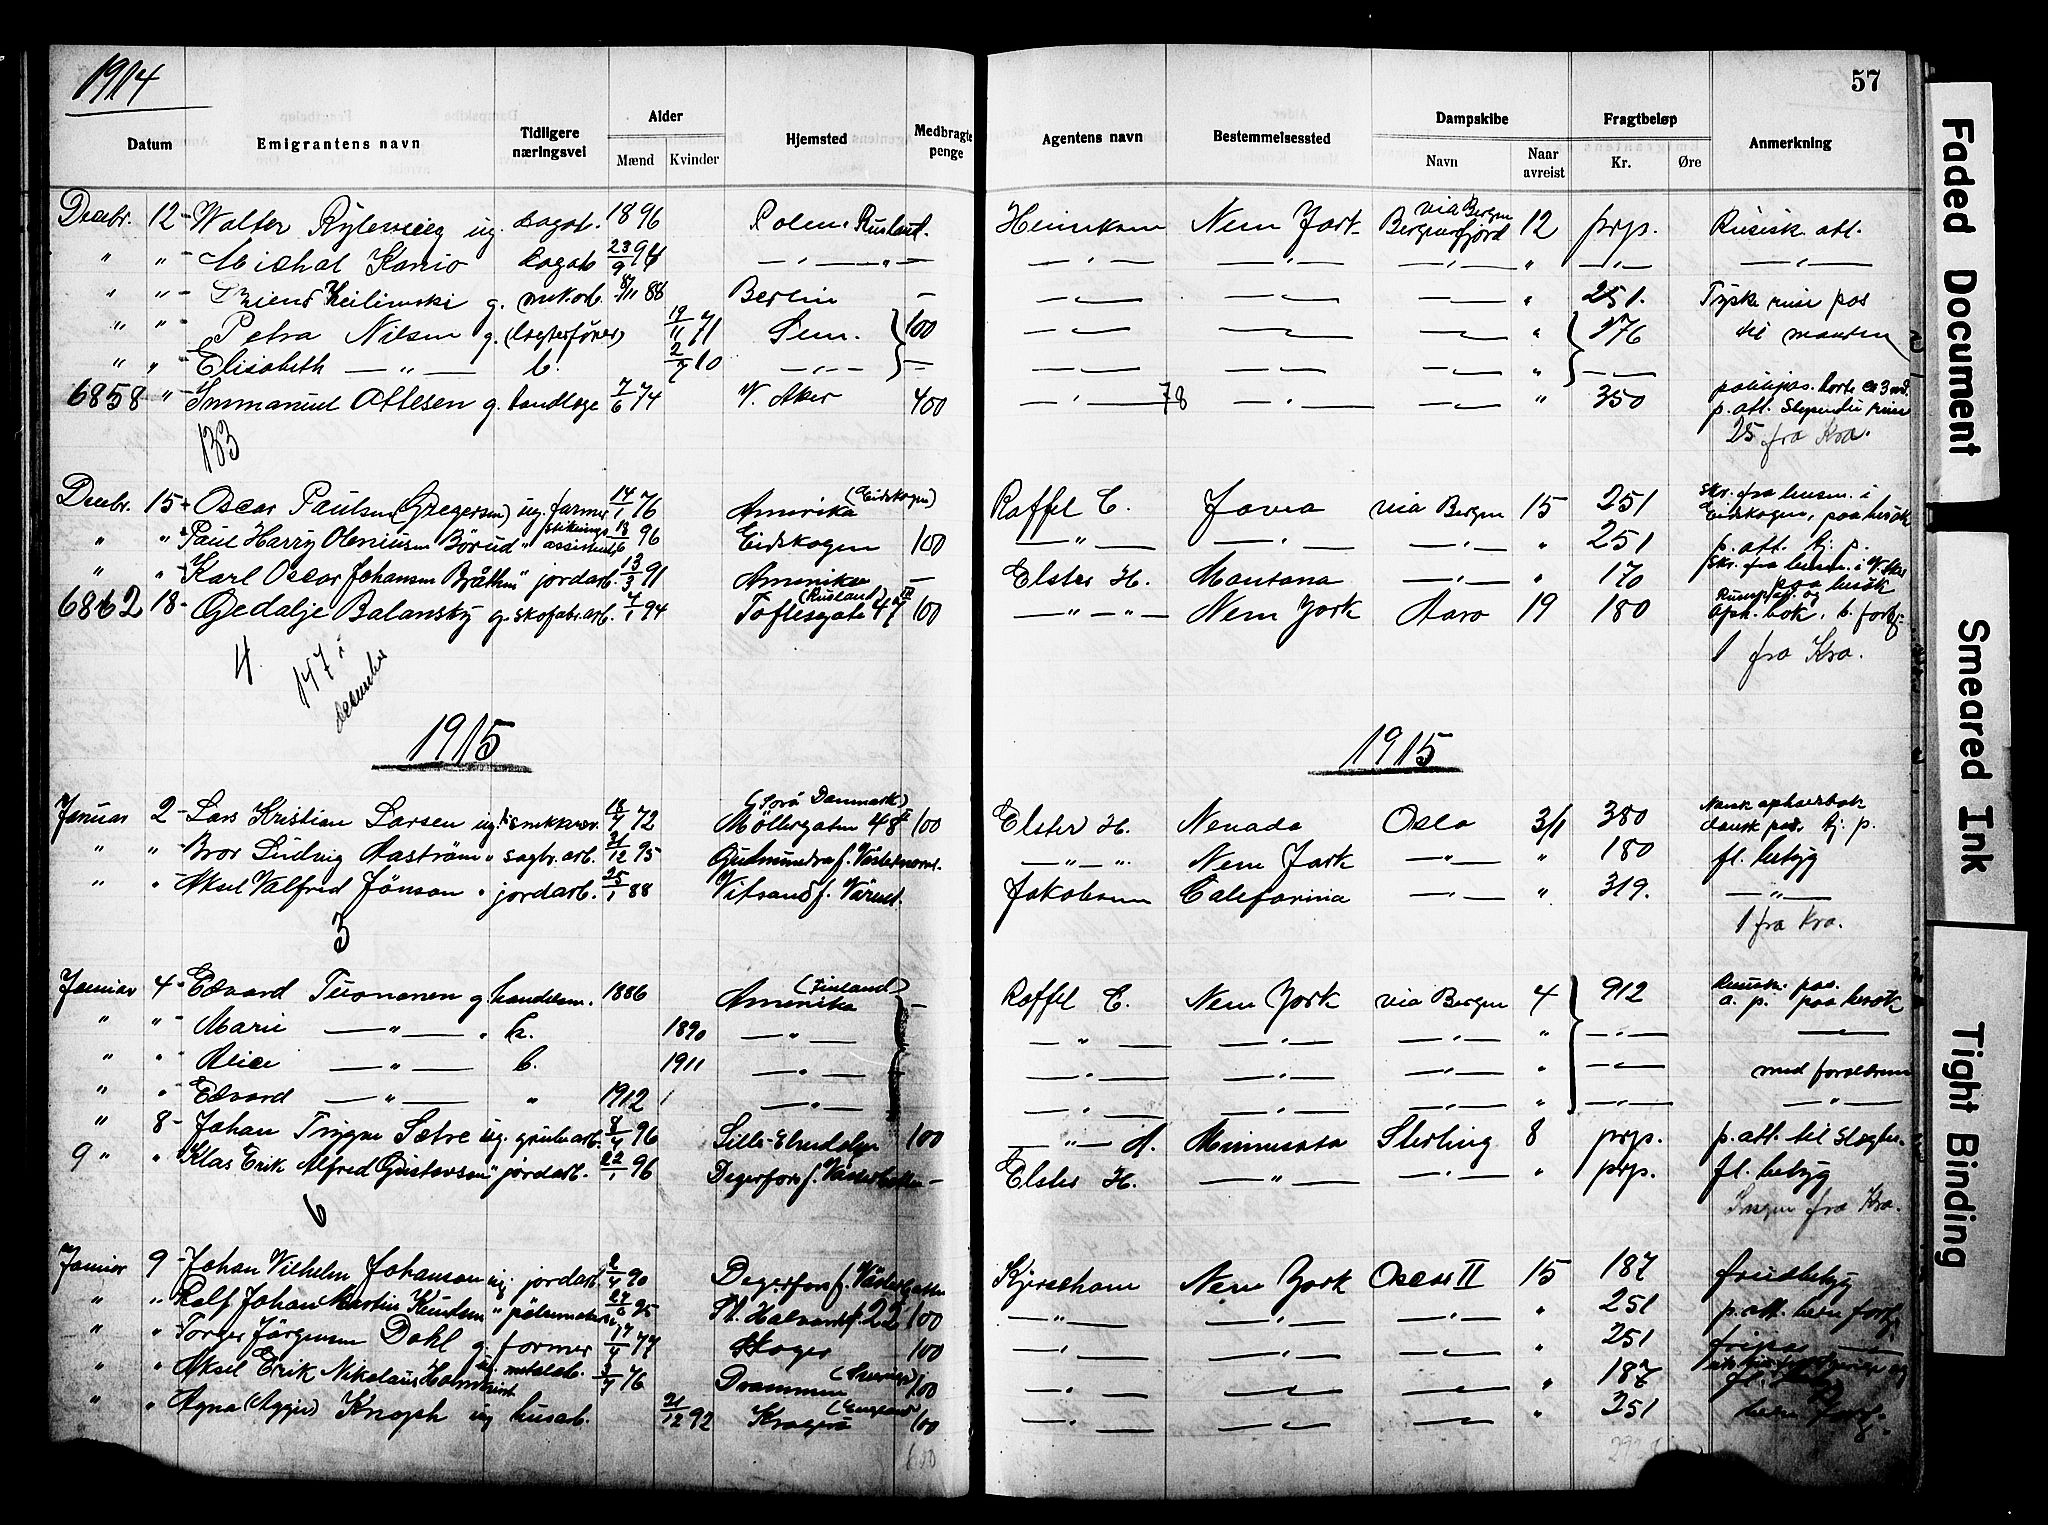 1914
57
Datum Emigrantens navn Tidligere næringsvei Alder Mænd Kvinder Hjemsted Medbragte penge Agentens navn Bestemmelsessted Dampskibe Navn Naar avreist Fragtbeløp Kr. Øre Anmerkning
Decbr. 12 - Walter ug. 1896 Polen, Rusland. New York via Bergen Bergensfjord 12 prp. Russisk att.
" " - Michal Kanio 23/9 94 — " — — " — — " — — " — " — " — — " —
" " - g. 8/11 88 Berlin — — " — — " — — " — " 251. pas
" " - Petra Nilsen g. 19/11 71 Sem. 100 — " — — " — — " — " 176 til manden
" " - Elisabeth — " — b. 2/7 10 — " — — — " — — " — — " — " — " —
6858 " - Immanuel Ottesen g. tandlæge 7/6 74 V. Aker 400 — " — 78 — " — — " — " 350 p. att.
133 25 fra Kra.
Decbr. 15 - Oscar Paulsen (Gregersen) ug. farmer 14/1 76 Amerika (Eidskogen) Raffel E. Iowa via Bergen 15 251 skr. fra lensm. i Eidskogen, paa besøk
" " Paul Harry Oleniusen Börud " assistent 18/6 96 Eidskogen 100 — " — — " — — " — " 251 p. att. Kj. p.
" " Karl Oscar Johansen Bråthen " jordarb. 13/3 91 Amerika — Elster H. Montana — " — " 170 skr. fra lensm. i V. Aker paa besøk
6862 18 - Gedalje Balansky g. skofabr.arb. 7/1 94 (Rusland) Toftesgate 47 100 — " — " — New York Aaro 19 180 oph. bok, b. forbj.
4. 147 i december 1 fra Kra.
1915 1915
Januar 2 - Lars Kristian Larsen ug. snekker 18/7 72 (Sorø Danmark) Möllergaten 48 100 Elster H. Nevada Oslo 3/1 380 Norsk opholdsbok dansk pas. Kj. p.
" " Bror Ludvig Aaström " sagbr.arb. 21/12 95 Gudmundra f. Västernorrl. — " — ". New York — " — " 180 fl. betyg
" " Aksel Valfred Jönson " jordarb. 25/1 88 Vitsand f. Värml. Jakobsen California — " — " 319. — " —
3 1 fra Kra.
Januar 4 Edvard Tuononen g. handelsm. 1886 Amerika (Finland) — Raffel E. New York via Bergen 4 912 Russisk pas. a. p. paa besøk
" " Marie — " — " h. 1890 — " — — " — — " — — " — " — " — — " —
" " Alice — " — b. 1911 — " — — " — — " — — " — " — " — med forældrene
" " Edvard — " — " 1912 — " — — " — — " — — " — " — " — — " —
" 8 - Johan Trygve Sætre ug. grubearb. 8/4 96 Lille-Elvedalen 100 — " — A. Minnesota Sterling 8 prp. p. att. til
9 " " Klas Erik Alfred Gustavson " jordarb. 22/1 96 Degerfors f. Västerbotten — Elster H. — " — — " — " prp. fl. betyg
6 Ingen fra Kra.
Januar 9 - Johan Vilhelm Johanson ug. jordarb. 2/4 90 Degerfors f. Västerbotten Kjersehom New York Oscar II 15 187 fredbetyg
" " Rolf Johan Martin Knudsen " pölsemaker 27/6 95 St. Halvardsg. 22 100 — " — — " — — " — " 251 p. att. hen forbj.
" " Torger Jörgensen Dahl g. farmer 17/4 77 Skoger 100 — " — — " — — " — " 251 fripas
" " Aksel Erik Nikolaus Holmkvist metalarb. 3/7 76 Drammen (Sverige) 100 — " — — " — — " — " 187
" " Agna (Aggie) Knoph ug husarb. 21/12 92 Kragerø (England) 100 — " — — " — — " — " 251
600
Faded Document
Smeared Ink
Tight Binding